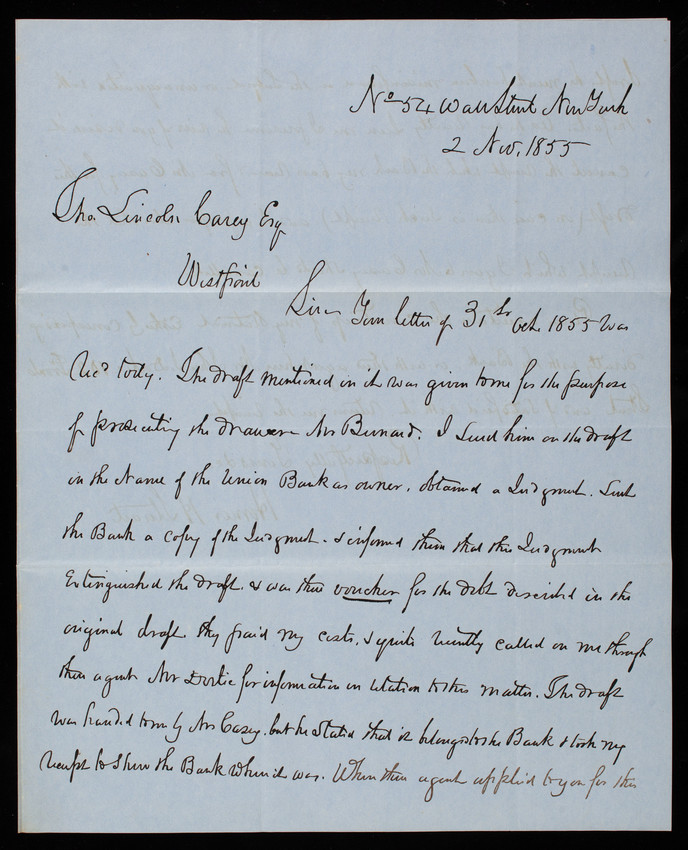 No 54 Wall Street New York
2 Nov, 1855
Tho. Lincoln Casey Esq
Westpoint
Sir Your letter of 31st Oct. 1855 was
Recd today. The draft mentioned in it was given to me for the purpose
of prosecuting the drawer Mr I sued him on the draft
in the Name of the Union Bank as owner, obtained a Judgment. Sent
the Bank a copy of the Judgment & informed them that this Judgment
Extinguished the draft. & was their voucher for the debt described in the
original draft they paid my costs, & quite recently called on me through
their agent Mr for information in relation to this matter. The draft
was handed to me by Mr Casey. but he stated that it belonged to the Bank & took my
receipt to show the Bank where it was. When their agent applied to you for this